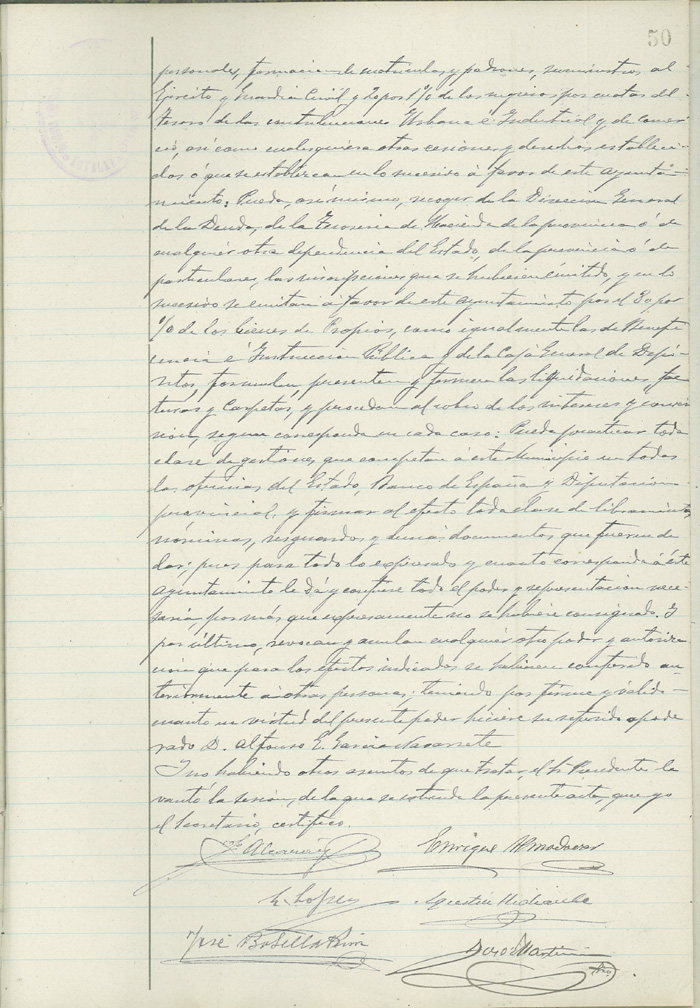 50
personales, formacion de matriculas y padrones, suministros al
Ejército y Guardia Civil y 20 por % de los ingresos por cuotas del
Tesoro de las contribuciones Urbana é Industrial y de comer-
cio, así como cualesquiera otras cesiones y derechos estableci-
dos ó que se establezcan en lo sucesivo á favor de este ayunta-
miento: Pueda, así mismo, recoger de la Direccion General
de la Deuda, de la Tesoreria de Hacienda de la provincia ó de
cualquier otra dependencia del Estado, de la provincia ó de
particulares, las inscripciones que se hubiesen emitido, y en lo
sucesivo se emitan á favor de este ayuntamiento por el 80 por
% de los bienes de Propios, como igualmente las de Benefi-
cencia é Instruccion Pública y de la Caja General de Depó-
sitos, formulen presenten y firmen las liquidaciones, fac-
turas y carpetas, y procedan al cobro de los intereses y conver-
sion, segun corresponda en cada caso: Pueda practicar toda
clase de gestiones que competan á este Municipio en todas
las oficinas del Estado, Banco de España y Diputacion
provincial, y firmar al efecto toda clase de libramientos
nóminas, resguardos y demás documentos que fueren de
dar; pues para todo lo expresado y cuanto corresponda á este
ayuntamiento le dá y confiere todo el poder y representacion nece-
saria, por más que expresamente no se hubiere consignado. Y
por último, revocan y anulan cualquier otro poder y autoriza-
cion que para los efectos indicados se hubiesen conferido an-
teriormente á otras personas; teniendo por firme y válido
cuanto en virtud del presente poder hiciere su referido apode-
rado D. Alfonso E. Garcia Navarrete
Y no habiendo otros asuntos de que tratar, el Sr. Presidente le-
vantó la sesión, de la que se extiende la presente acta, que yo
el Secretario, certifico.
Enrique Almodovar
E. Lopez
Agustin
José Botella
Martinez